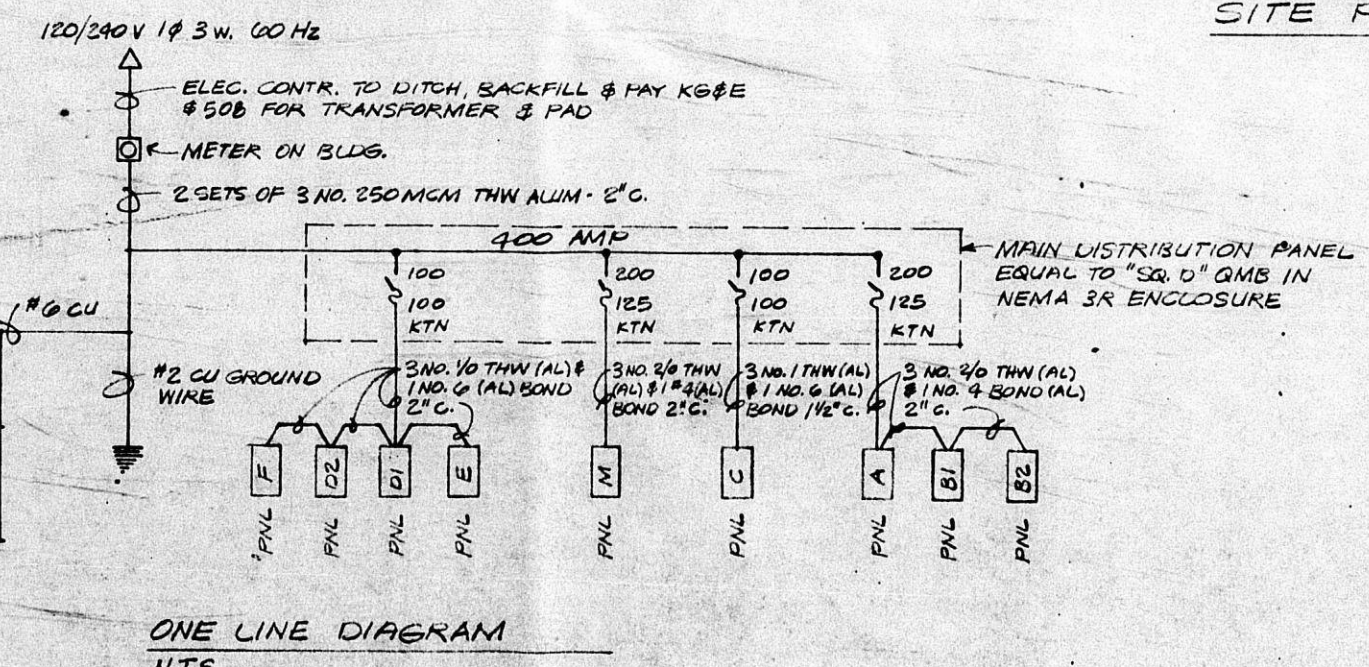 SITE
120/240 V 1φ 3 W. 60 Hz
ELEC. CONTR. TO DITCH, BACKFILL & PAY KG&E
$508 FOR TRANSFORMER & PAD
METER ON BLDG.
2 SETS OF 3 NO. 250 MCM THW ALUM - 2" C.
400 AMP
MAIN DISTRIBUTION PANEL
EQUAL TO "SQ. D" QMB IN
NEMA 3R ENCLOSURE
100
100
KTN
200
125
KTN
100
100
KTN
200
125
KTN
#6 CU
#2 CU GROUND
WIRE
3 NO. 1/0 THW (AL) &
1 NO. 6 (AL) BOND
2" C.
3 NO. 2/0 THW
(AL) & 1 #4 (AL)
BOND 2" C.
3 NO. 1 THW (AL)
& 1 NO. 6 (AL)
BOND 1 1/2" C.
3 NO. 2/0 THW (AL)
& 1 NO. 4 BOND (AL)
2" C.
F
D2
D1
E
M
C
A
B1
B2
PNL
PNL
PNL
PNL
PNL
PNL
PNL
PNL
PNL
ONE LINE DIAGRAM
NTS